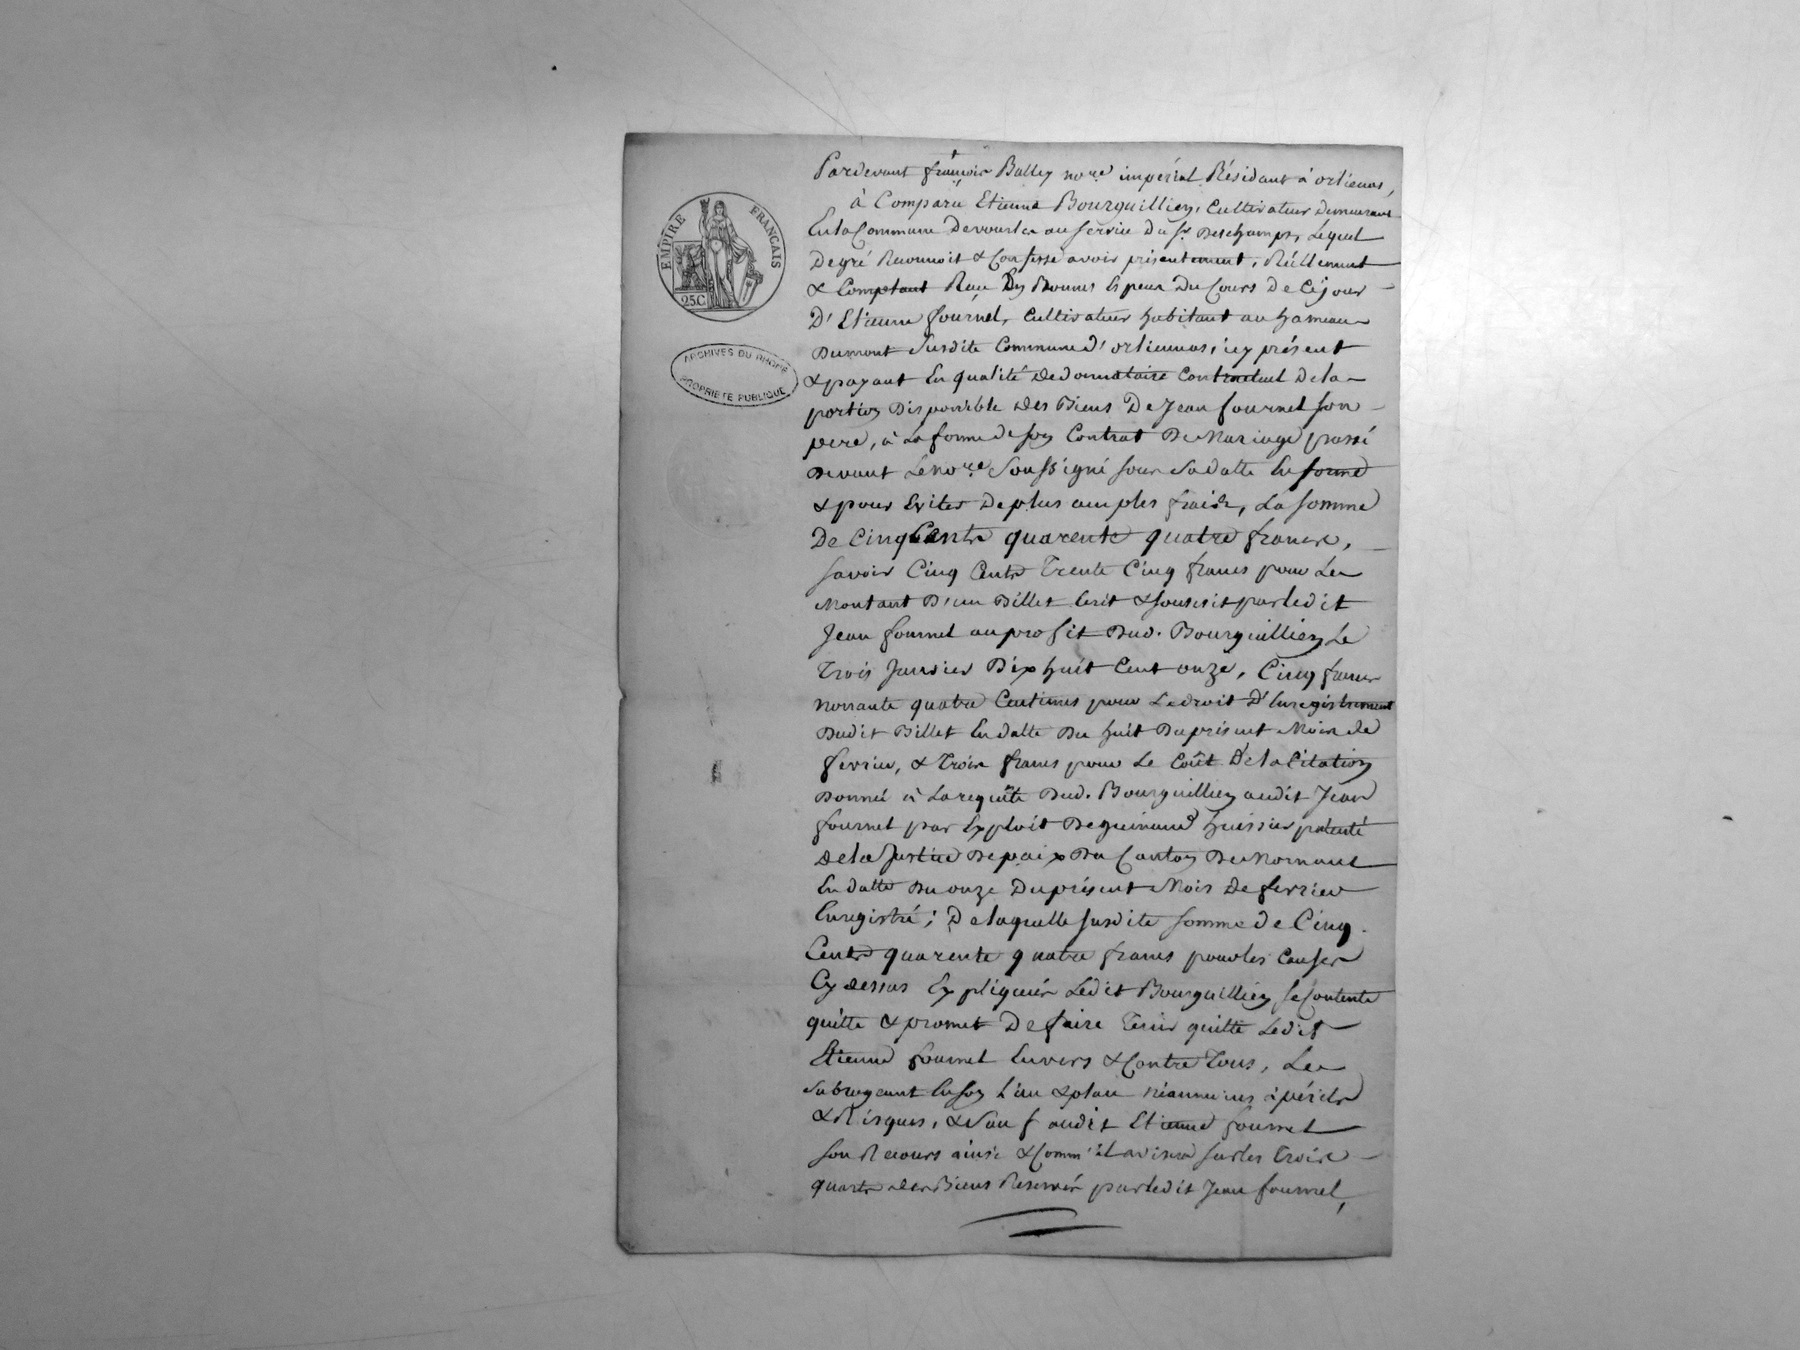 EMPIRE FRANÇAIS
25C
ARCHIVES DU RHONE
PROPRIETE PUBLIQUE
Pardevant françois Balley no.re impérial Résidant à orlienas,
à Comparu Etienne Bourguillien, Cultivateur demeurant
En la Commune De au service du Sr. Deschamps, Lequel
De gré Reconnoit & Confesse avoir présentement, Réellement
& Comptant Reçu En Bonnes Espèces Du Cours De Cejour
D'Etienne fournel, Cultivateur habitant au hameau
Dumont Susdite Commune d'orlienas, icy présent
& payant En qualité De donnataire Contractuel De la
portion Disponible des Biens De Jean fournel son
pere, à La forme de son Contrat De Mariage passé
Devant Le no.re Soussigné sour Sa datte En forme
& pour Eviter De plus amples fraix, La somme
De Cinq Cents quarente quatre francs,
savoir Cinq Cents Trente Cinq francs pour Le
Montant D'un Billet Ecrit & souscrit par ledit
Jean fournel au profit Dud. Bourguillien Le
Trois Janvier Dix huit Cent onze, Cinq francs
nonante quatre Centimes pour Le droit D'Enregistrement
Dudit Billet En datte Du huit Du présent Mois de
fevrier, & Trois francs pour Le Coût De la Citation
Donnée à La requête Dud. Bourguillien audit Jean
fournel par Exploit De guinand huissier patenté
De la Justice De paix Du Canton De Mornant
En datte Du onze Du présent Mois De fevrier
Enregistré; De laquelle susdite somme de Cinq
Cents quarente quatre francs pour les Causes
Cy dessus Expliquées Ledit Bourguillien se Contente
quitte & promet De faire Tenir quitte Ledit
Etienne fournel Envers & Contre Tous, Le
Subrogeant En son Lieu & place néanmoins à périls
& Risques, & Sauf audit Etienne fournel
son Recours ainsi & Comm'il avisera sur les Trois
quarts des Biens Reservés par ledit Jean fournel,